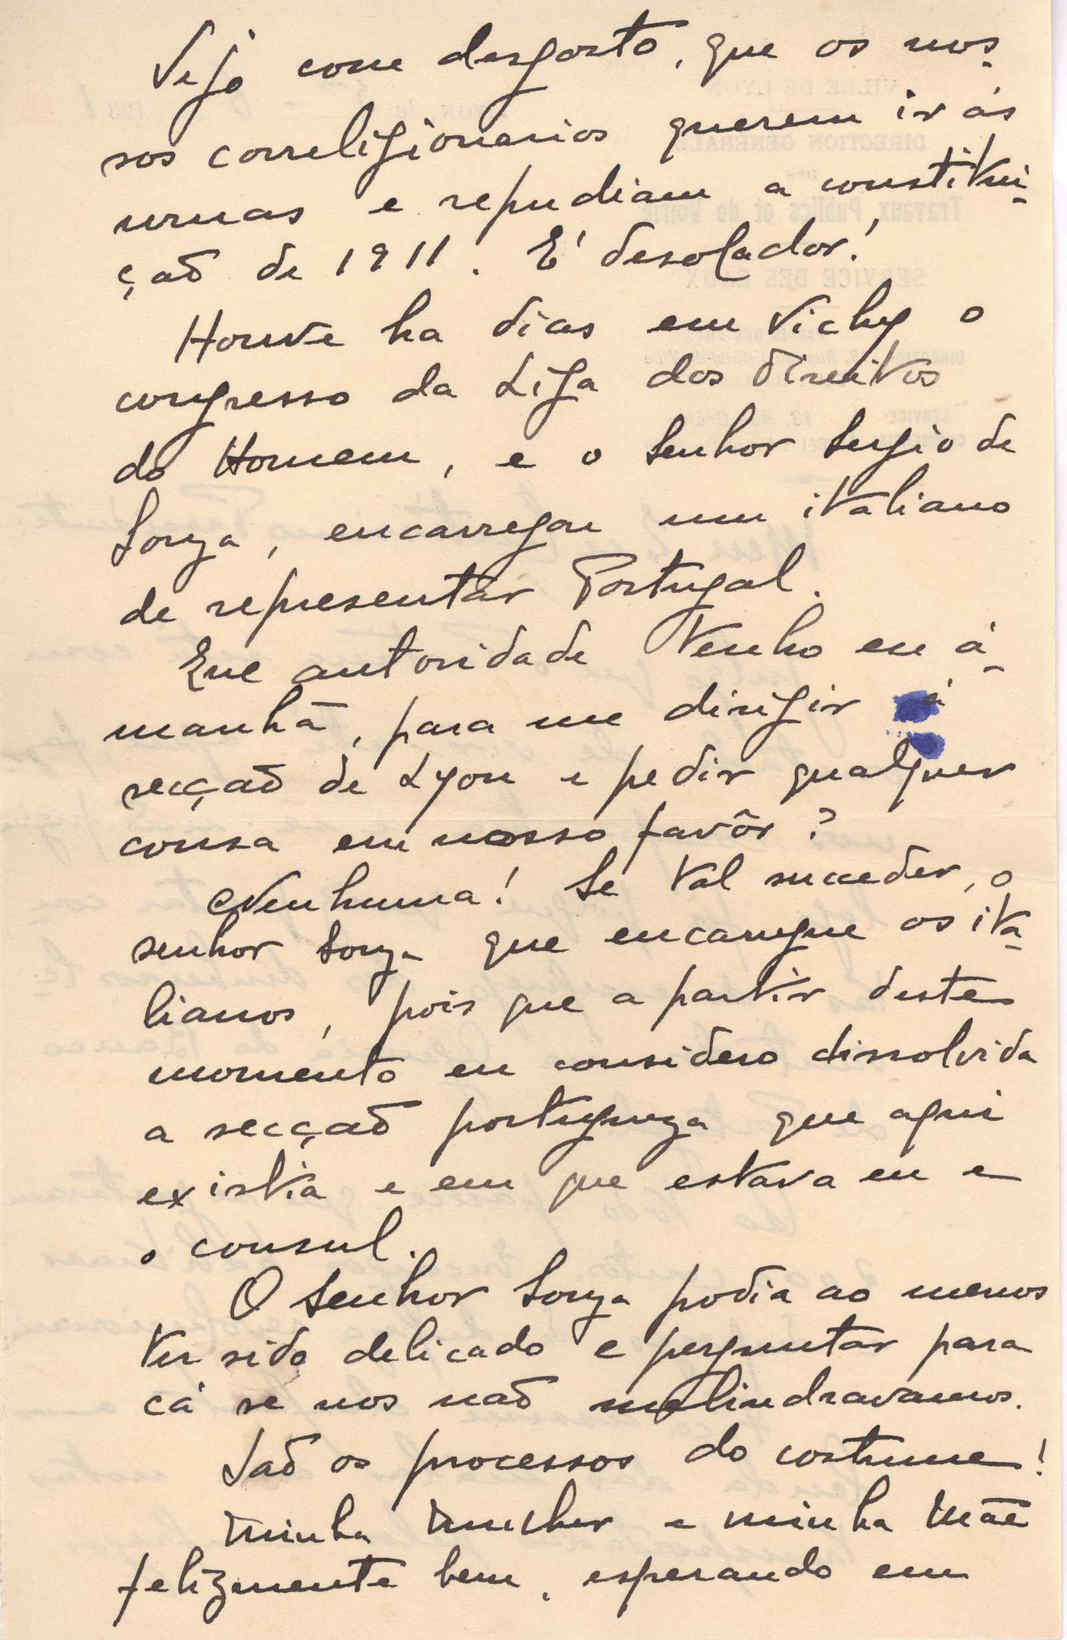 Vejo com desgosto, que os nos-
sos correligionarios querem ir ás
urnas e repudiam a constitui-
ção de 1911. É desolador!
Houve ha dias em Vichy o
congresso da Liga dos Direitos
do Homem, e o Senhor Sergio de
Souza, encarregou um italiano
de representar Portugal.
Que autoridade tenho eu á-
manhã, para me dirigir á
secção de Lyon e pedir qualquer
cousa em nosso favôr?
Nenhuma! Se tal succeder, o
senhor Souza que encarregue os ita-
lianos, pois que a partir deste
momento eu considero dissolvida
a secção portugueza que aqui
existia e em que estava eu e
o consul.
O Senhor Souza podia ao menos
ter sido delicado e perguntar para
cá se nos não melindravamos.
São os processos do costume!
Minha mulher e minha Mãe
felizmente bem, esperando em